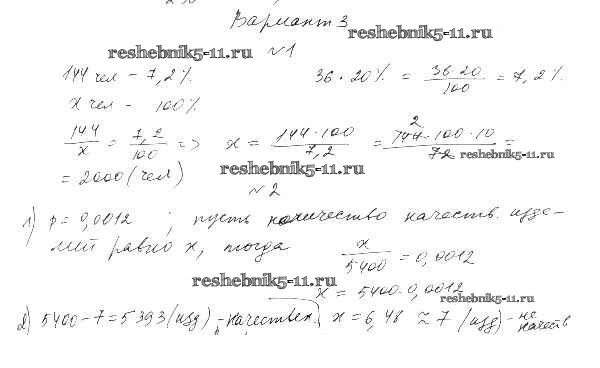 Вариант 3
reshebnik5-11.ru
reshebnik5-11.ru
№1
144 чел – 7,2%
36 · 20% = 36·20/100 = 7,2%.
x чел – 100%
144/x = 7,2/100 => x = 144·100/7,2 = 144·100·10/72 =
2
reshebnik5-11.ru
= 2000 (чел)
reshebnik5-11.ru
№2
1) p = 0,0012 ; пусть количество качеств. изде-
лий равно x, тогда x/5400 = 0,0012
reshebnik5-11.ru
x = 5400·0,0012
reshebnik5-11.ru
2) 5400–7=5393 (изд) – качествен. x = 6,48 ≈ 7 (изд) – не качеств